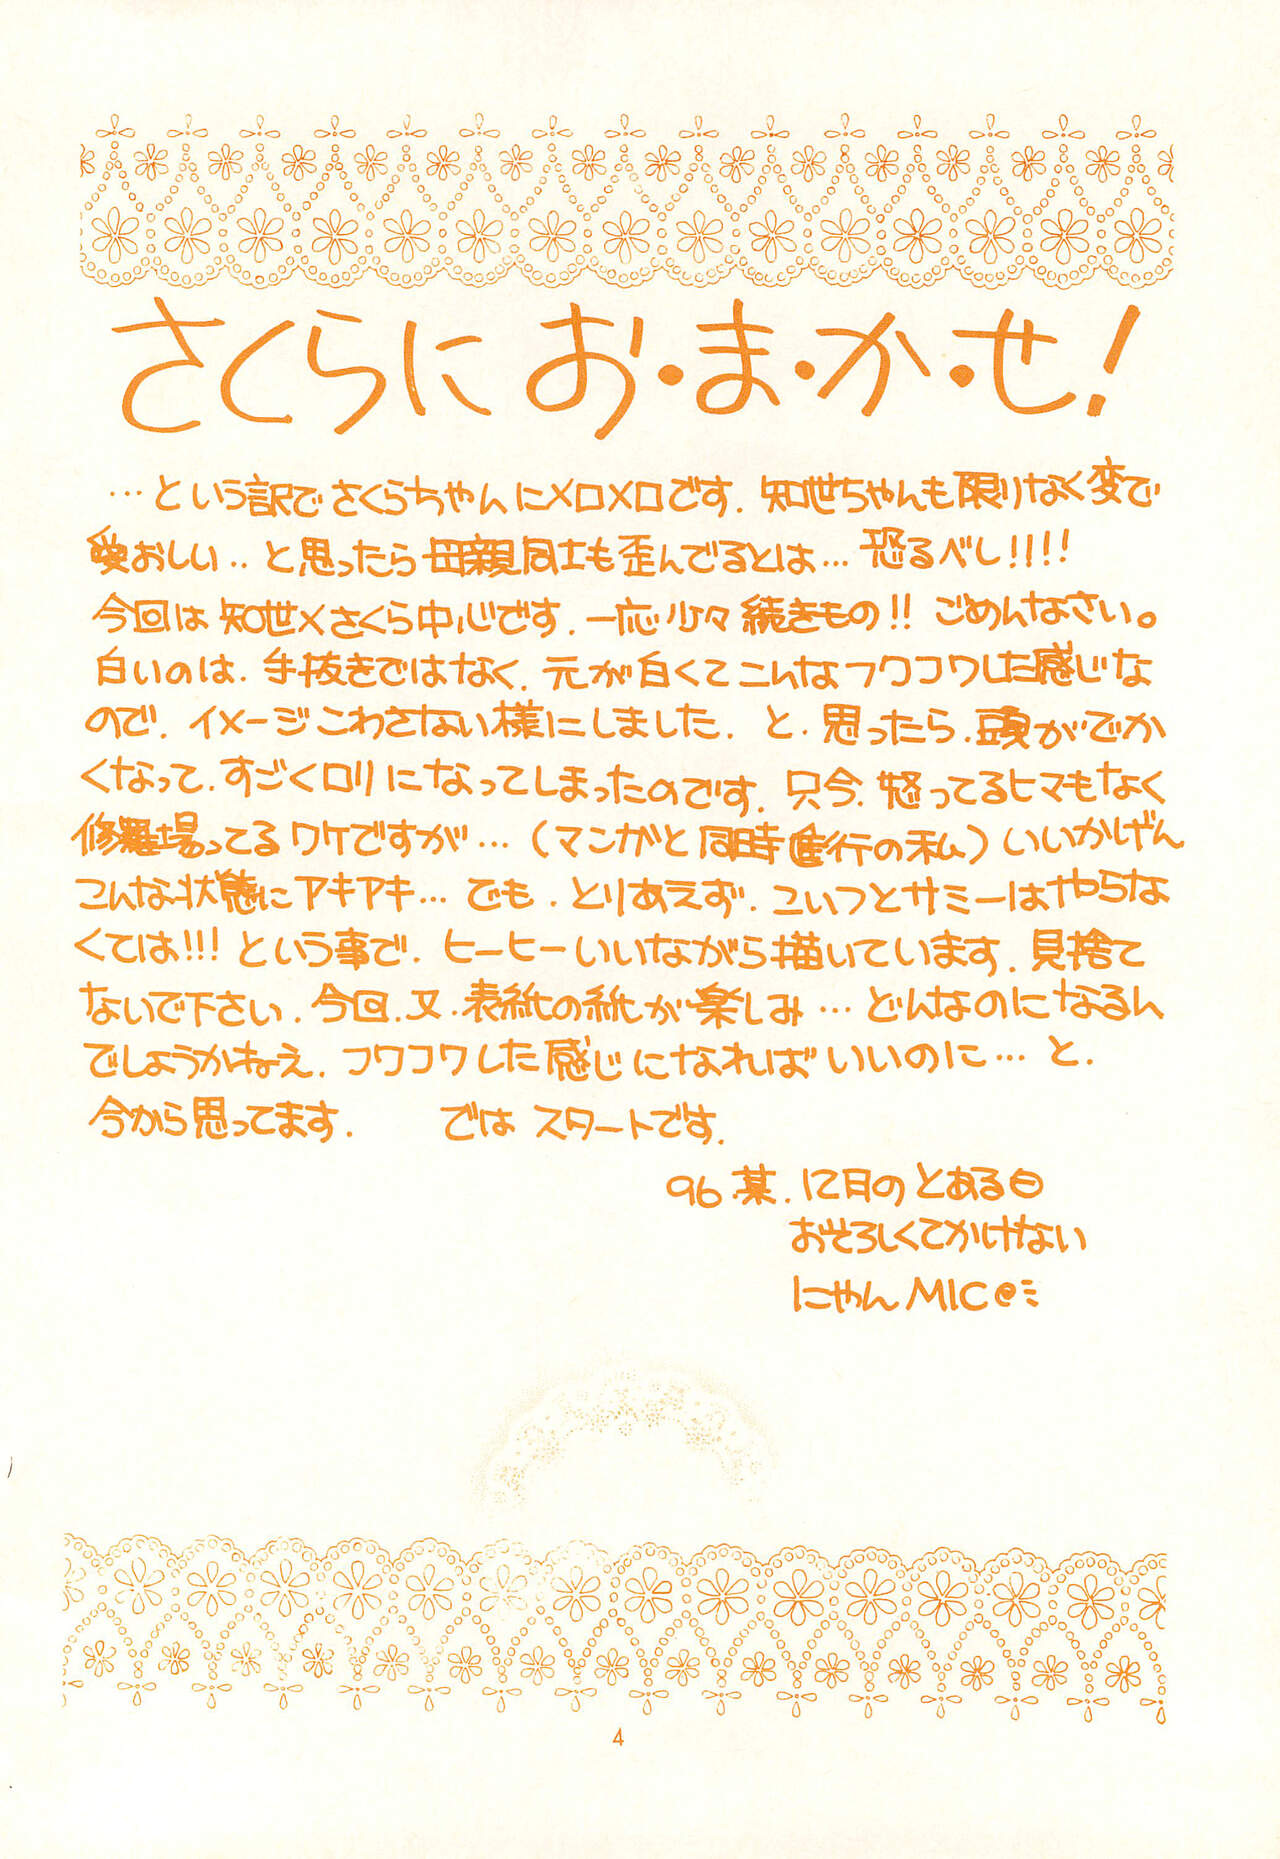 さくらにお・ま・か・せ!
…という訳でさくらちゃんにメロメロです. 知世ちゃんも限りなく変で
愛おしい‥と思ったら母親同士も歪んでるとは…恐るべし!!!!
今回は知世×さくら中心です. 一応少々続きもの!! ごめんなさい。
白いのは. 手抜きではなく. 元が白くてこんなフワコワした感じな
ので. イメージこわさない様にしました. と. 思ったら. 頭がでか
くなって. すごくロリになってしまったのです. 只今. 怒ってるヒマもなく
修羅場ってるワケですが…(マンガと同時進行の私)いいかげん
こんな状態にアキアキ…でも. とりあえず. こいつとサミーはやらな
くては!!! という事で. ヒーヒーいいながら描いています. 見捨て
ないで下さい. 今回. 又. 表紙の紙が楽しみ…どんなのになるん
でしょうかねえ. フワコワした感じになればいいのに…と.
今から思ってます. では スタートです.
96.某. 12月のとある日
おそろしくてかけない
にゃんMIC
4